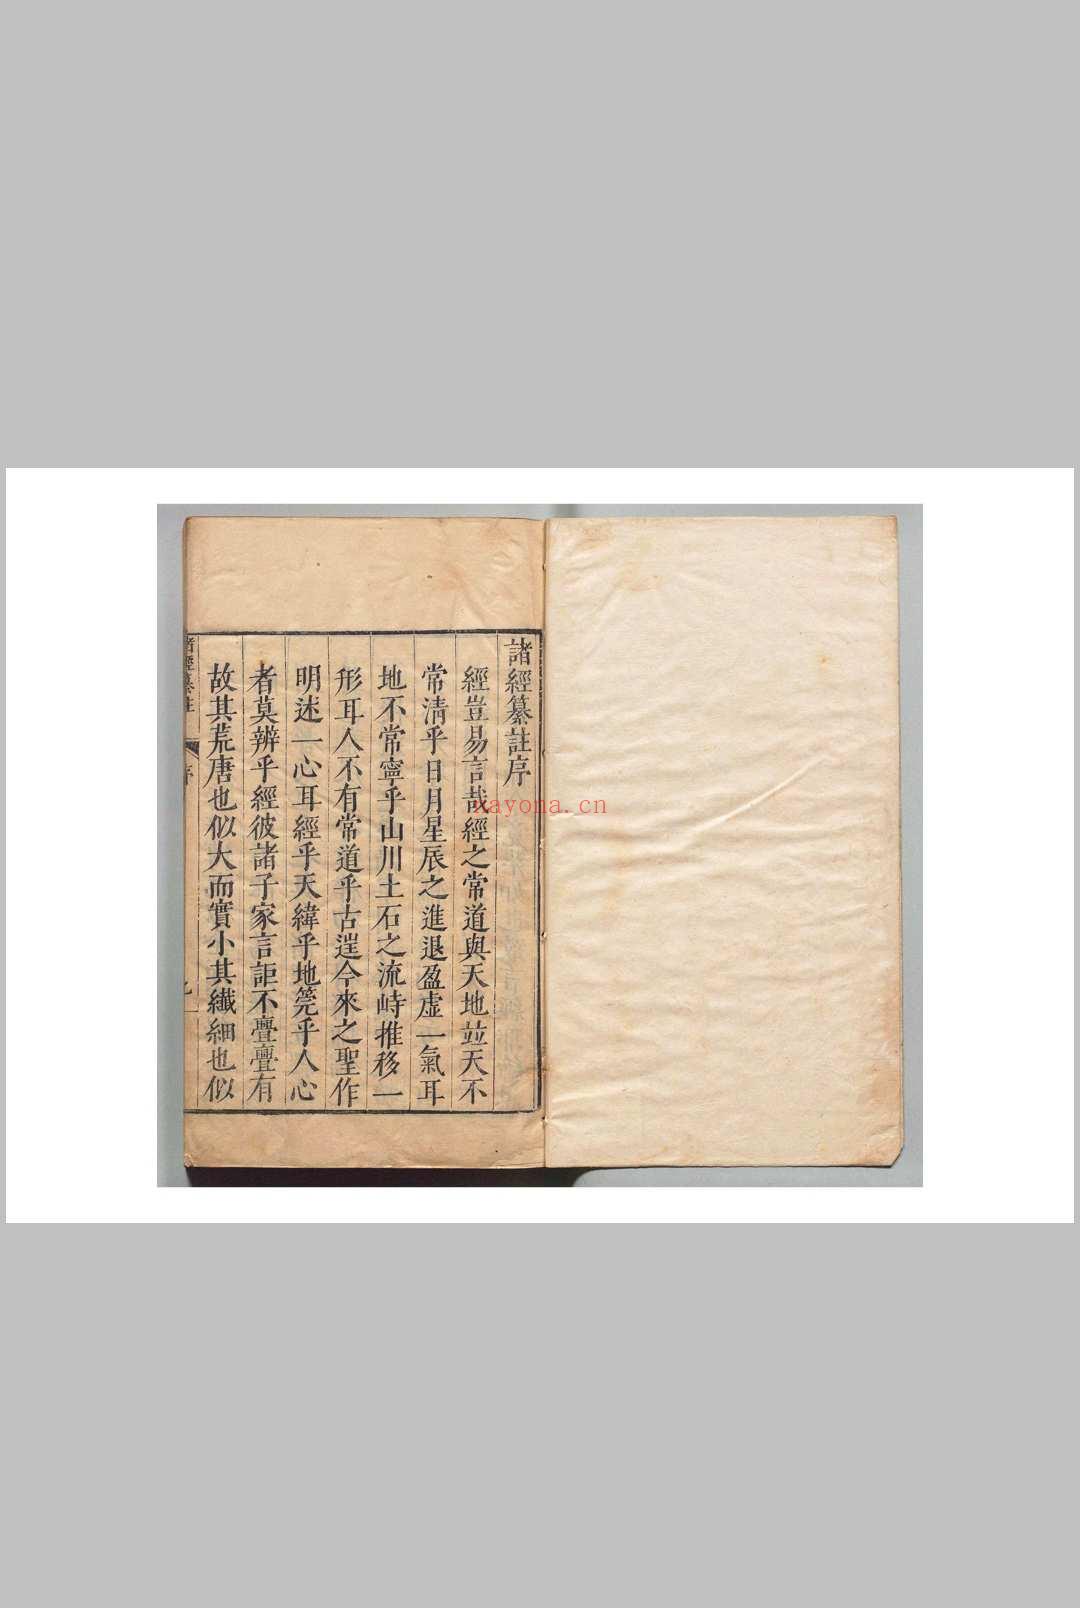 諸經纂註序
經豈易言哉經之常道與天地並天不
常清乎日月星辰之進退盈虛一氣耳
地不常寧乎山川土石之流峙推移一
形耳人不有常道乎古逞今來之聖作
明述一心耳經乎天緯乎地筦乎人心
者莫辨乎經彼諸子家言詎不亹亹有
故其荒唐也似大而實小其纖細也似
諸經纂註
序
xayona.cn